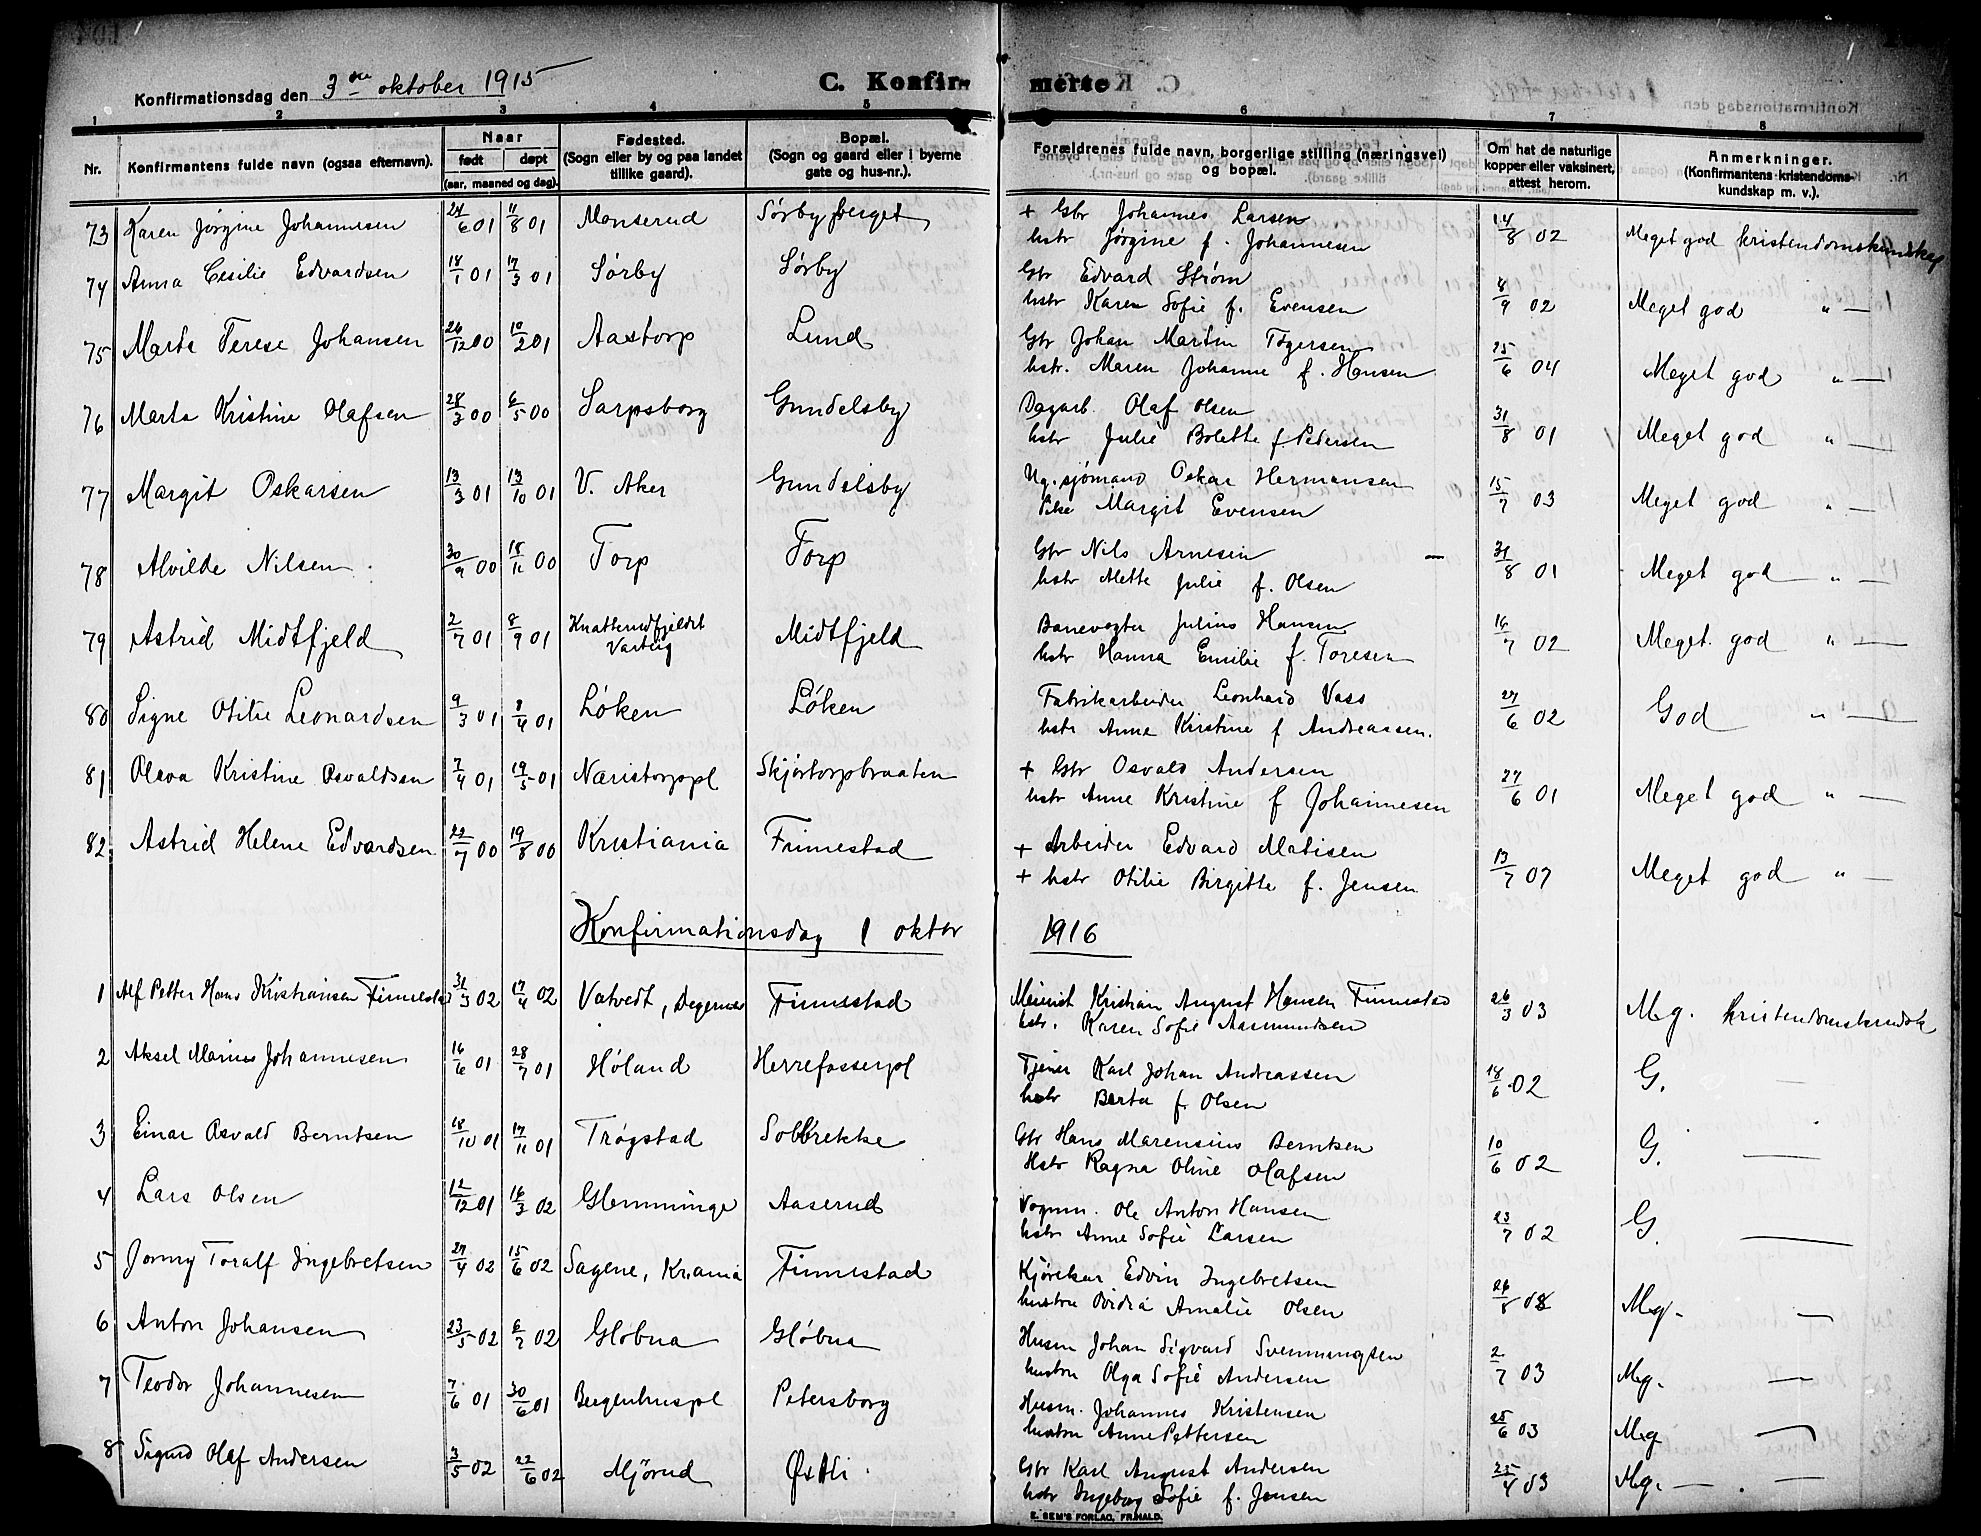 Konfirmationsdag den 3die oktober 1915
C. Konfirmerte
1 2 3 4 5 6 7 8
Nr. Konfirmantens fulde navn (ogsaa efternavn). Naar født døpt (aar, maaned og dag). Fødested. (Sogn eller by og paa landet tillike gaard). Bopæl. (Sogn og gaard eller i byerne gate og hus-nr.). Forældrenes fulde navn, borgerlige stilling (næringsvei) og bopæl. Om hat de naturlige kopper eller vaksinert, attest herom. Anmerkninger. (Konfirmantens kristendomskundskap m. v.).
73 Karen Jørgine Johannesen 24/6 01 11/8 01 Monserud Sørbyberget + Gbr Johannes Larsen 14/8 02 Meget god kristendomskundskap
hstr Jørgine f. Johannesen
74 Anna Cesilie Edvardsen 18/1 01 17/3 01 Sørby Sørby Gbr Edvard Strøm 8/9 02 Meget god " —
hstr Karen Sofie f. Evensen
75 Marte Terese Johansen 26/12 00 10/2 01 Aastorp Lund Gbr Johan Martin Togersen 25/6 04 Meget god " —
hstr. Maren Johanne f. Hansen
76 Marta Kristine Olafsen 28/3 00 6/5 00 Sarpsborg Gundelsby Dagarb. Olaf Olsen 31/8 01 Meget god " —
hstr Julie Bolette f. Pedersen
77 Margit Oskarsen 13/3 01 13/10 01 V. Aker Gundelsby Ug. sjømand Oskar Hermansen 15/7 03 Meget god " —
Pike Margit Evensen
78 Alvilde Nilsen 30/9 00 18/11 00 Torp Torp Gbr Nils Arnesen 31/8 01 Meget god " —
hstr Mette Julie f. Olsen
79 Astrid Midtfjeld 2/7 01 8/9 01 Knatterudfjeldet Varteig Midtfjeld Banevogter Julius Hansen 16/7 02 Meget god " —
hstr Hanna Emilie f. Toresen
80 Signe Otilie Leonardsen 9/3 01 8/4 01 Løken Løken Fabrikarbeider Leonhard Vass 27/6 02 God " —
hstr Anne Kirstine f Andreassen.
81 Olava Kristine Osvaldsen 7/4 01 19/5 01 Næristorppl Skjørtorpbraaten + Gbr Osvald Andersen 27/6 01 Meget god " —
hstr Anne Kristine f Johannesen
82 Astrid Helene Edvardsen 22/7 00 19/8 00 Kristiania Finnestad + Arbeider Edvard Matisen 13/7 07 Meget god " —
+ hstr Otilie Birgitte f. Jensen
Konfirmationsdag 1 oktbr 1916
1 Alf Petter Hans Kristiansen Finnestad 31/3 02 17/4 02 Vatvedt, Degernes Finnestad Meierist Kristian August Hansen Finnestad 26/3 03 M.g. kristendomskundsk
hstr. Karen Sofie Aasmundsen
2 Aksel Marius Johannesen 16/6 01 28/7 01 Høland Herrefosserpl Tjener Karl Johan Andreassen 18/6 02 G. —
hstr Berta f. Olsen
3 Einar Osvald Berntsen 18/10 01 17/11 01 Trøgstad Solbrekke Gbr Hans Marensius Berntsen 10/6 02 G. —
Hstr Ragna Oline Olafsen
4 Lars Olsen 12/12 01 16/3 02 Glemminge Aaserud Vognm. Ole Anton Hansen 23/7 02 G. —
hstr Anne Sofie Larsen
5 Jonny Toralf Ingebretsen 27/4 02 15/6 02 Sagene, Kr.ania Finnestad Kjørekar Edvin Ingebretsen 26/8 08 M.g. —
hustru Amalie Olsen
6 Anton Johansen 23/5 02 6/7 02 Gløbua Gløbua Husm Johan Sigvard Svenningsen 2/7 03 M.g. —
hustru Olga Sofie Andersen
7 Teodor Johannesen 7/6 01 30/6 01 Borgenhuspl Petersborg Husm. Johannes Kristensen 25/6 03 M.g —
hustru Anne Pettersen
8 Sigurd Olaf Andersen 3/5 02 22/6 02 Mjørud Østli Gbr Karl August Andersen 25/4 03 M.g. —
hstr Ingeborg Sofie f. Jensen
E. SEM'S FORLAG, FR.HALD.